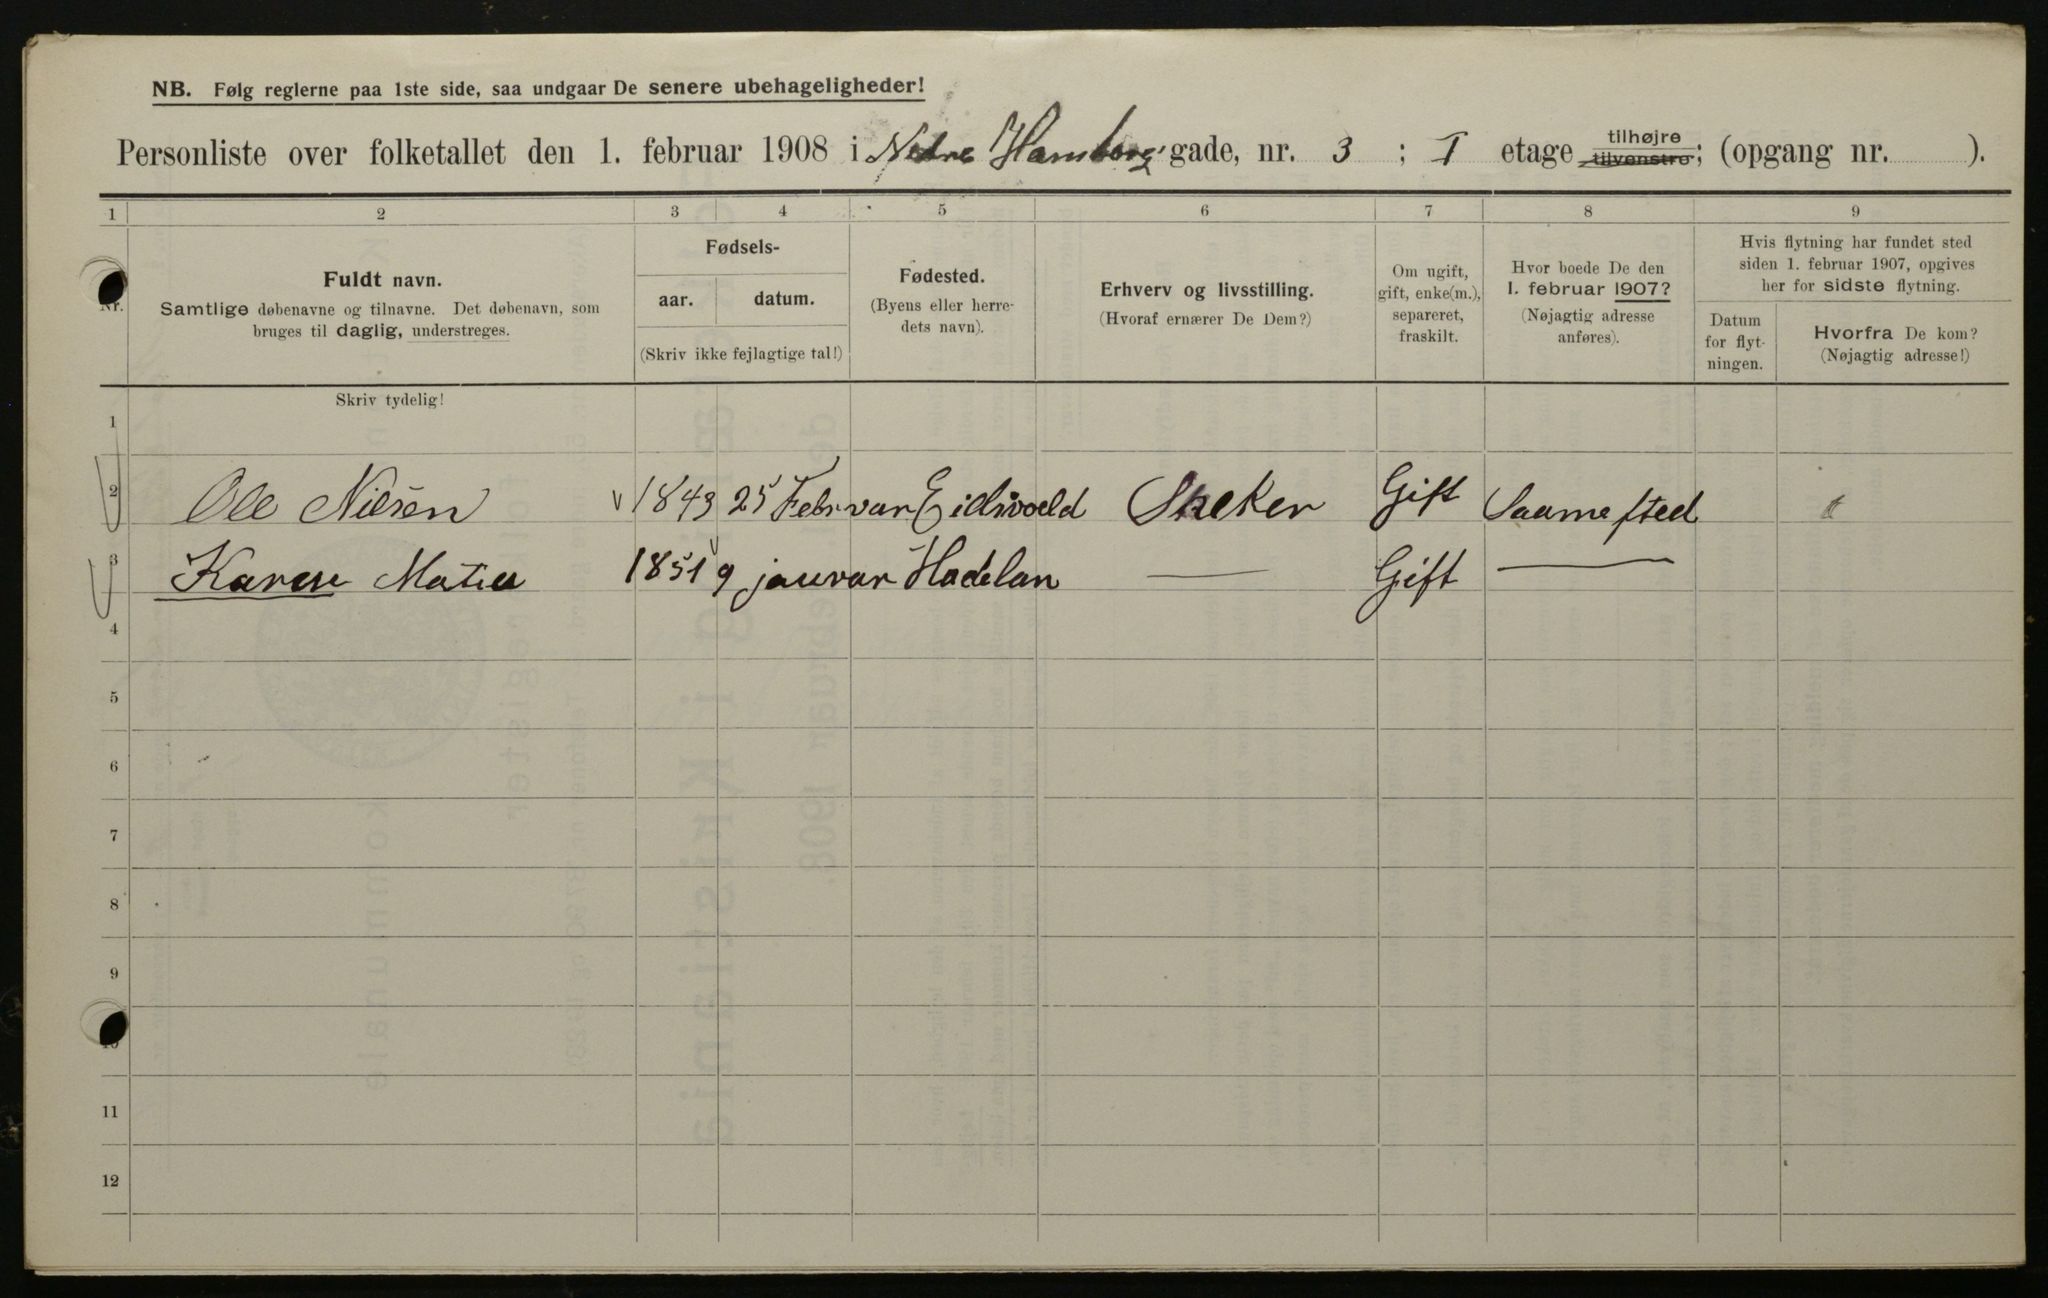 NB. Følg reglerne paa 1ste side, saa undgaar De senere ubehageligheder!
Personliste over folketallet den 1. februar 1908 i Nedre Hamborg gade, nr. 3 ; I etage tilhøjre tilvenstre; (opgang nr. ).
1 2 3 4 5 6 7 8 9
Nr.
Fuldt navn.
Samtlige døbenavne og tilnavne. Det døbenavn, som
bruges til daglig, understreges.
Fødsels-
aar. datum.
(Skriv ikke fejlagtige tal!)
Fødested.
(Byens eller herre-
dets navn).
Erhverv og livsstilling.
(Hvoraf ernærer De Dem?)
Om ugift,
gift, enke(m.),
separeret,
fraskilt.
Hvor boede De den
1. februar 1907?
(Nøjagtig adresse
anføres).
Hvis flytning har fundet sted
siden 1. februar 1907, opgives
her for sidste flytning.
Datum
for flyt-
ningen.
Hvorfra De kom?
(Nøjagtig adresse!)
Skriv tydelig!
1
2 Ole Nilsen 1843 25 Februar Eidsvold Gift Saamested
3 Karen Matea 1851 9 januar Hadelan — Gift —
4
5
6
7
8
9
10
11
12